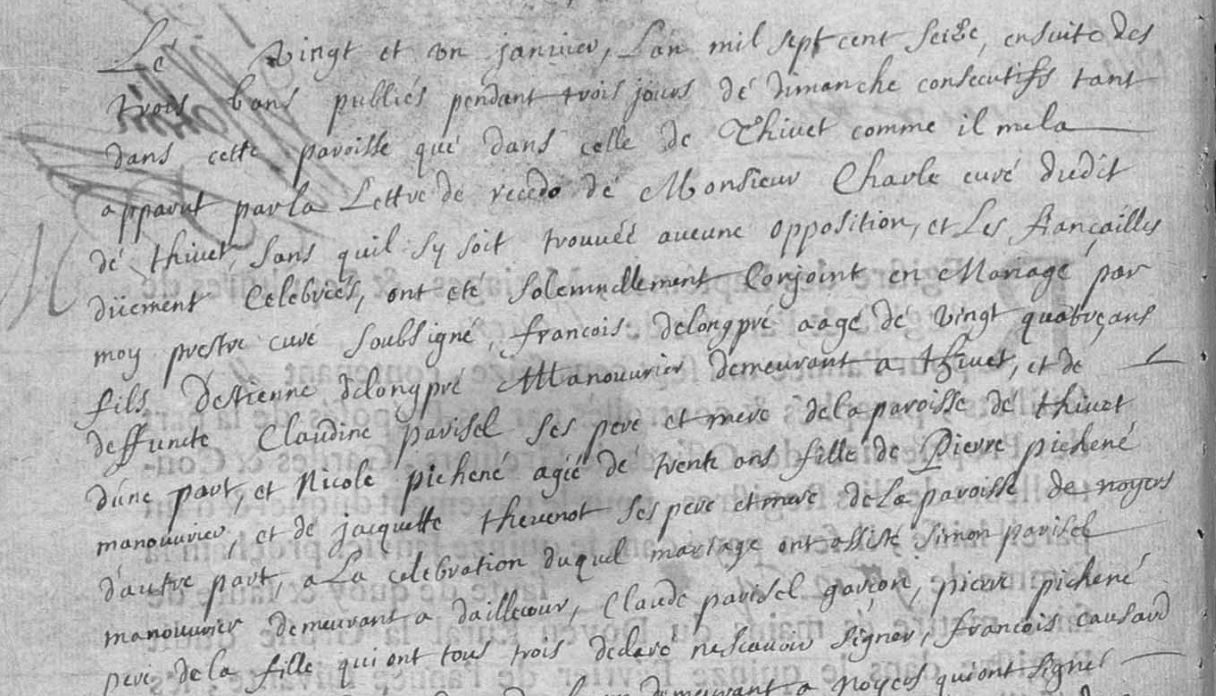 Le vingt et vn janvier, L'an mil sept cent seize, ensuite des
trois bans publiés pendant trois jours de dimanche consecutifs tant
dans cette paroisse que dans celle de Thivet comme il mela
apparut par la Lettre de recedo de Monsieur Charle curé dudit
de thivet, sans quil sy soit trouvée aucune opposition, et Les fiançailles
düement Celebrées, ont été solemnellement Conjoint en Mariage par
moy prestre curé soubsigné, francois delongpré aagé de vingt quatre ans
fils d'etienne delongpré Manouvrier demeurant a thivet, et de
deffuncte Claudine parisel ses pere et mere de la paroisse de thivet
d'une part, et Nicole pichené agée de trente ans fille de Pierre pichené
manouvrier, et de jacquette thevenot ses pere et mere de la paroisse de noyers
d'autre part, a La celebration duquel mariage ont assisté simon parisel
manouvrier demeurant a daillecour, Claude parisel garçon, pierre pichené
pere de la fille qui ont tous trois declaré ne scavoir signer, francois causard
demeurant a noyers qui ont signé